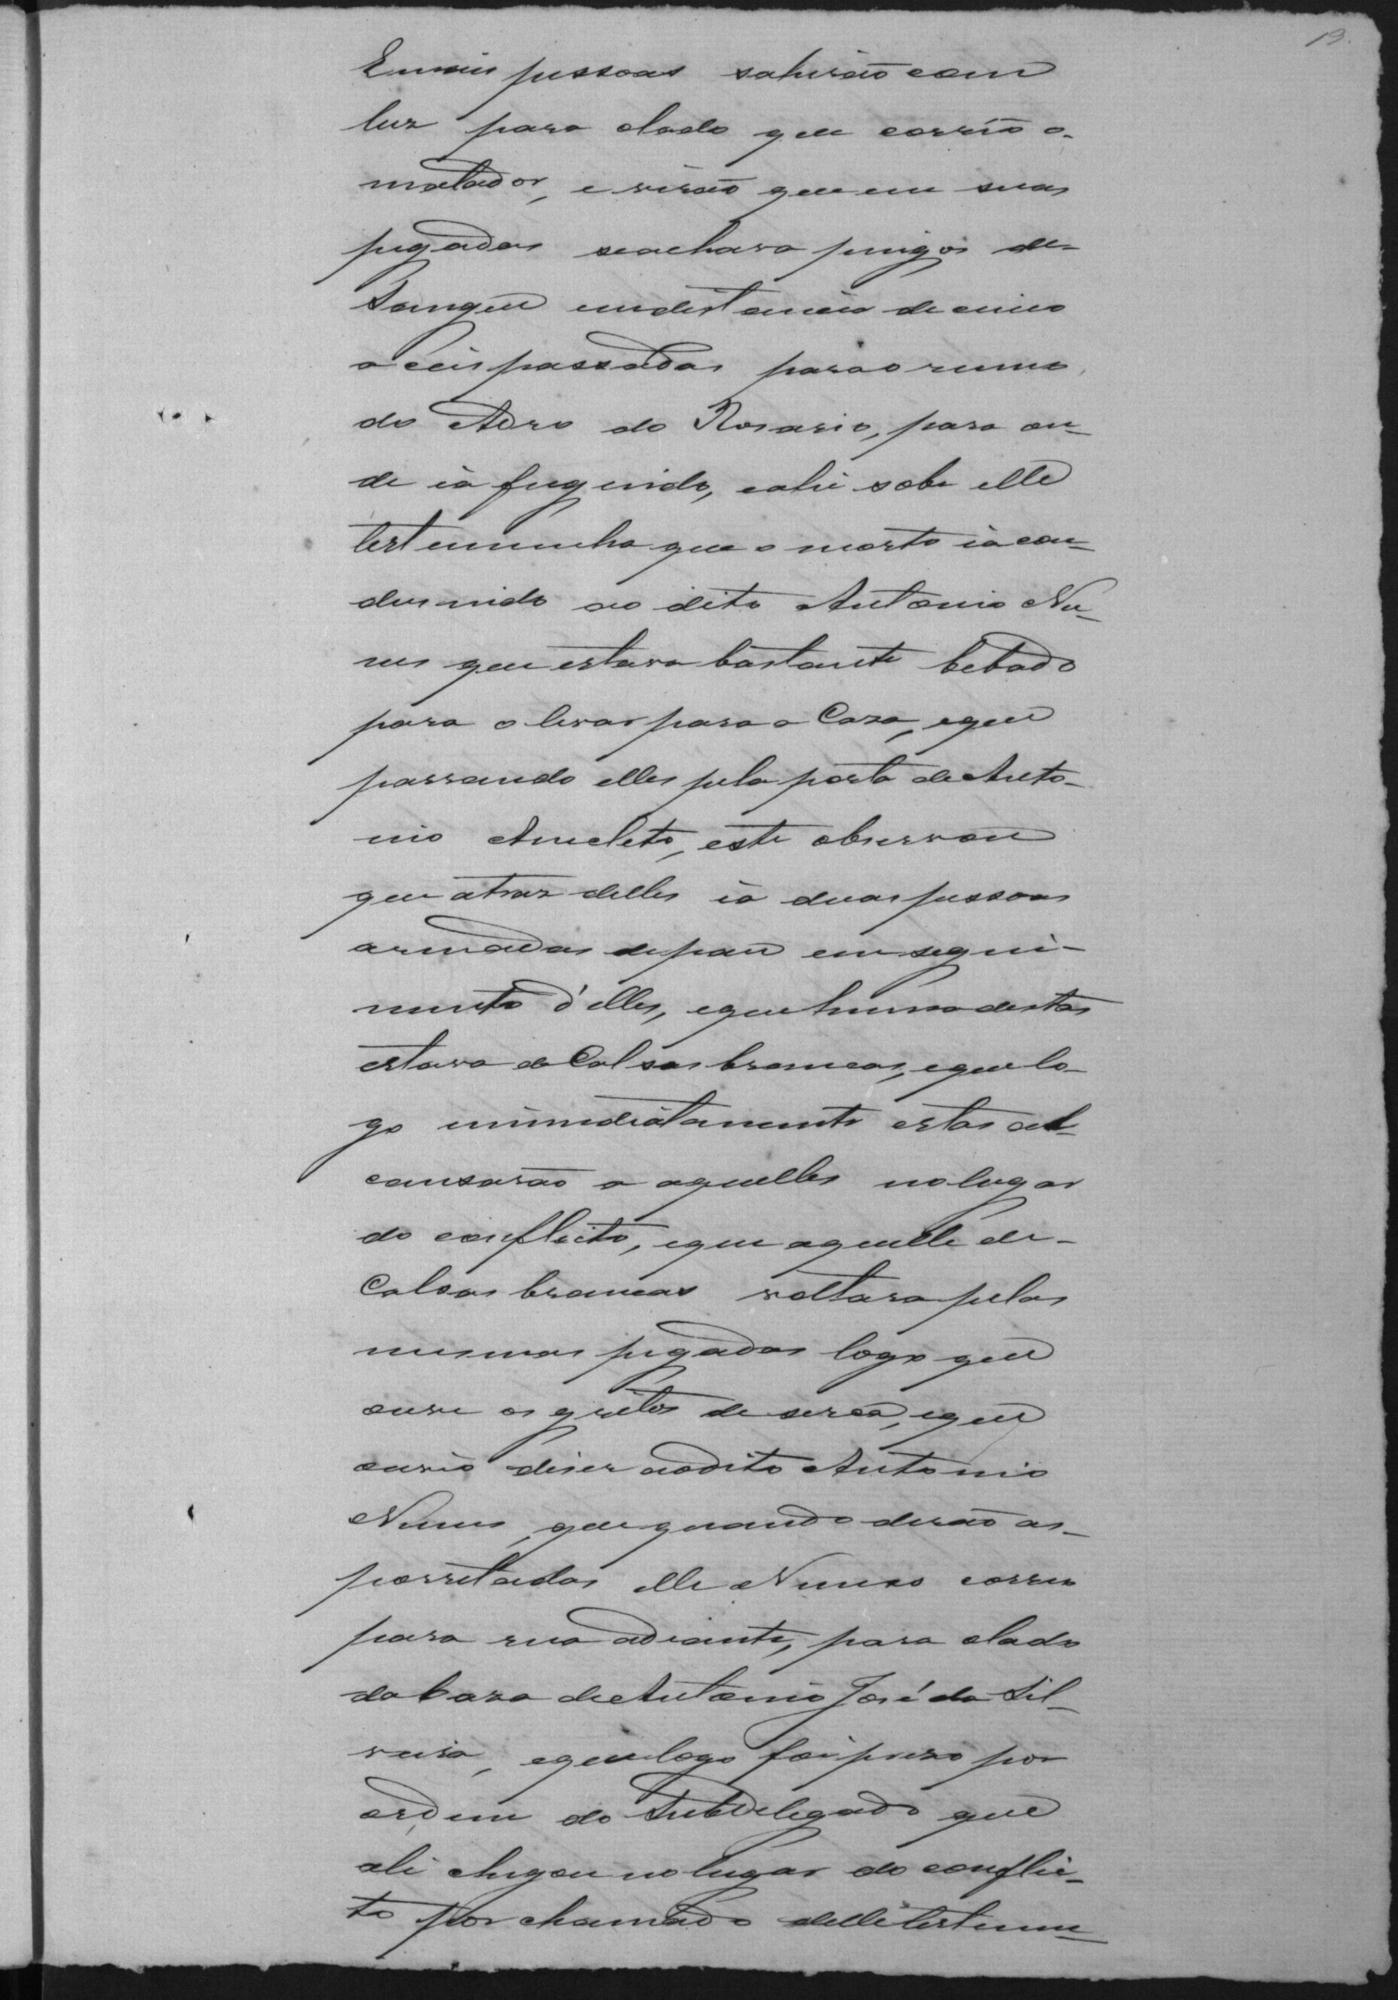 13.
E mais pessoas sahirão com
luz para o lado que corrêo o
matador, e virão que em suas
pegadas se achava pingos de
Sangue em distancia de cinco
a ceis passadas para o rumo
do Adro do Rosario, para on-
de ia fugindo, e ahi sobe elle
testemunha que o morto ia con-
dusindo ao dito Antonio Nu-
nes que estava bastante bebado
para o levar para a Caza, e que
passando elles pela porta de Anto-
nio Anecleto, este observou
que atraz delles ia duas pessoas
armadas de pau em segui-
mento d'elles, e que huma destas
estava de Calsas brancas, e que lo-
go immediatamente estas al-
cansarão a aquelles no lugar
do conflicto, e que aquelle de
Calsas brancas voltara pelas
mesmas pegadas logo que
ouve os gritos de serca, e que
ouvio diser ao dito Antonio
Nunes, que quando derão as
porretadas elle Nunes correu
para rua adiante, para o lado
da Caza de Antonio José da Sil-
veira, e que logo foi prezo por
ordem do Subdelegado que
ali chegou no lugar do conflic-
to por chamado delle testemu-